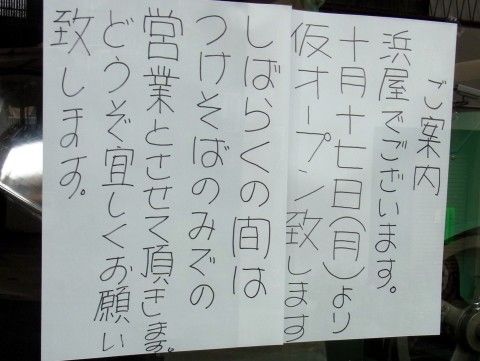 ご案内
浜屋でございます。
十月十七日(月)より
仮オープン致します
しばらくの間は
つけそばのみでの
営業とさせて頂きます。
どうぞ宜しくお願い
致します。